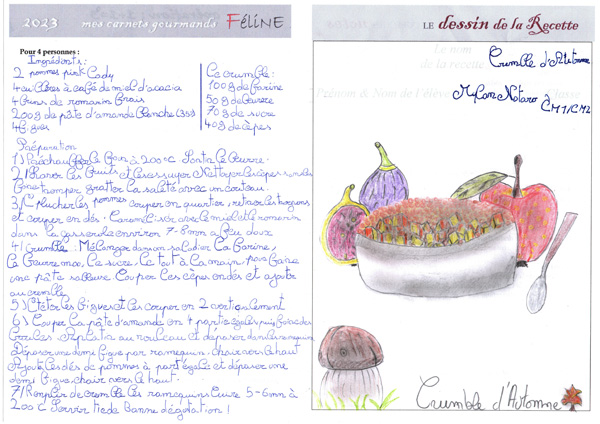 2023 mes carnets gourmands FéLiNE
Pour 4 personnes :
Ingrédients :
2 pommes pink Lady
4 cuillères à café de miel d'acacia
4 brins de romarin frais
200g de pâte d'amande blanche
4 figues
Le crumble :
100g de farine
50g de beurre
70g de sucre
40g de cèpes
Préparation
1) Préchauffer le four à 200°C. Sortir le beurre.
2) Laver les fruits et les essuyer. Nettoyer les cèpes sans les
faire tremper gratter la saleté avec un couteau.
3) Eplucher les pommes couper en quartier, retirer les trognons
et couper en dés. Caraméliser avec le miel et le romarin
dans la casserole environ 7-8 mn à feu doux
4) Crumble : Mélanger dans un saladier la farine,
le beurre mou, le sucre, le tout à la main, pour faire
une pâte sableuse. Couper les cèpes en dés et ajouter
au crumble
5) Etêter les figues et les couper en 2 verticalement
6) Couper la pâte d'amande en 4 parties égales puis faire des
boules. Aplatir au rouleau et déposer dans les ramequins
Déposer une demi figue par ramequin, chair vers le haut
Ajouter les dés de pommes à part égale et déposer une
demi figue, chair vers le haut.
7) Remplir de crumble les ramequins Cuire 5-6 mn à
200°C Servir tiède Bonne dégustation !
LE dessin de la Recette
Le nom
de la recette
Crumble d'Automne
Prénom & Nom de l'élève
Classe
Mylan Notaro
CM1/CM2
Crumble d'Automne